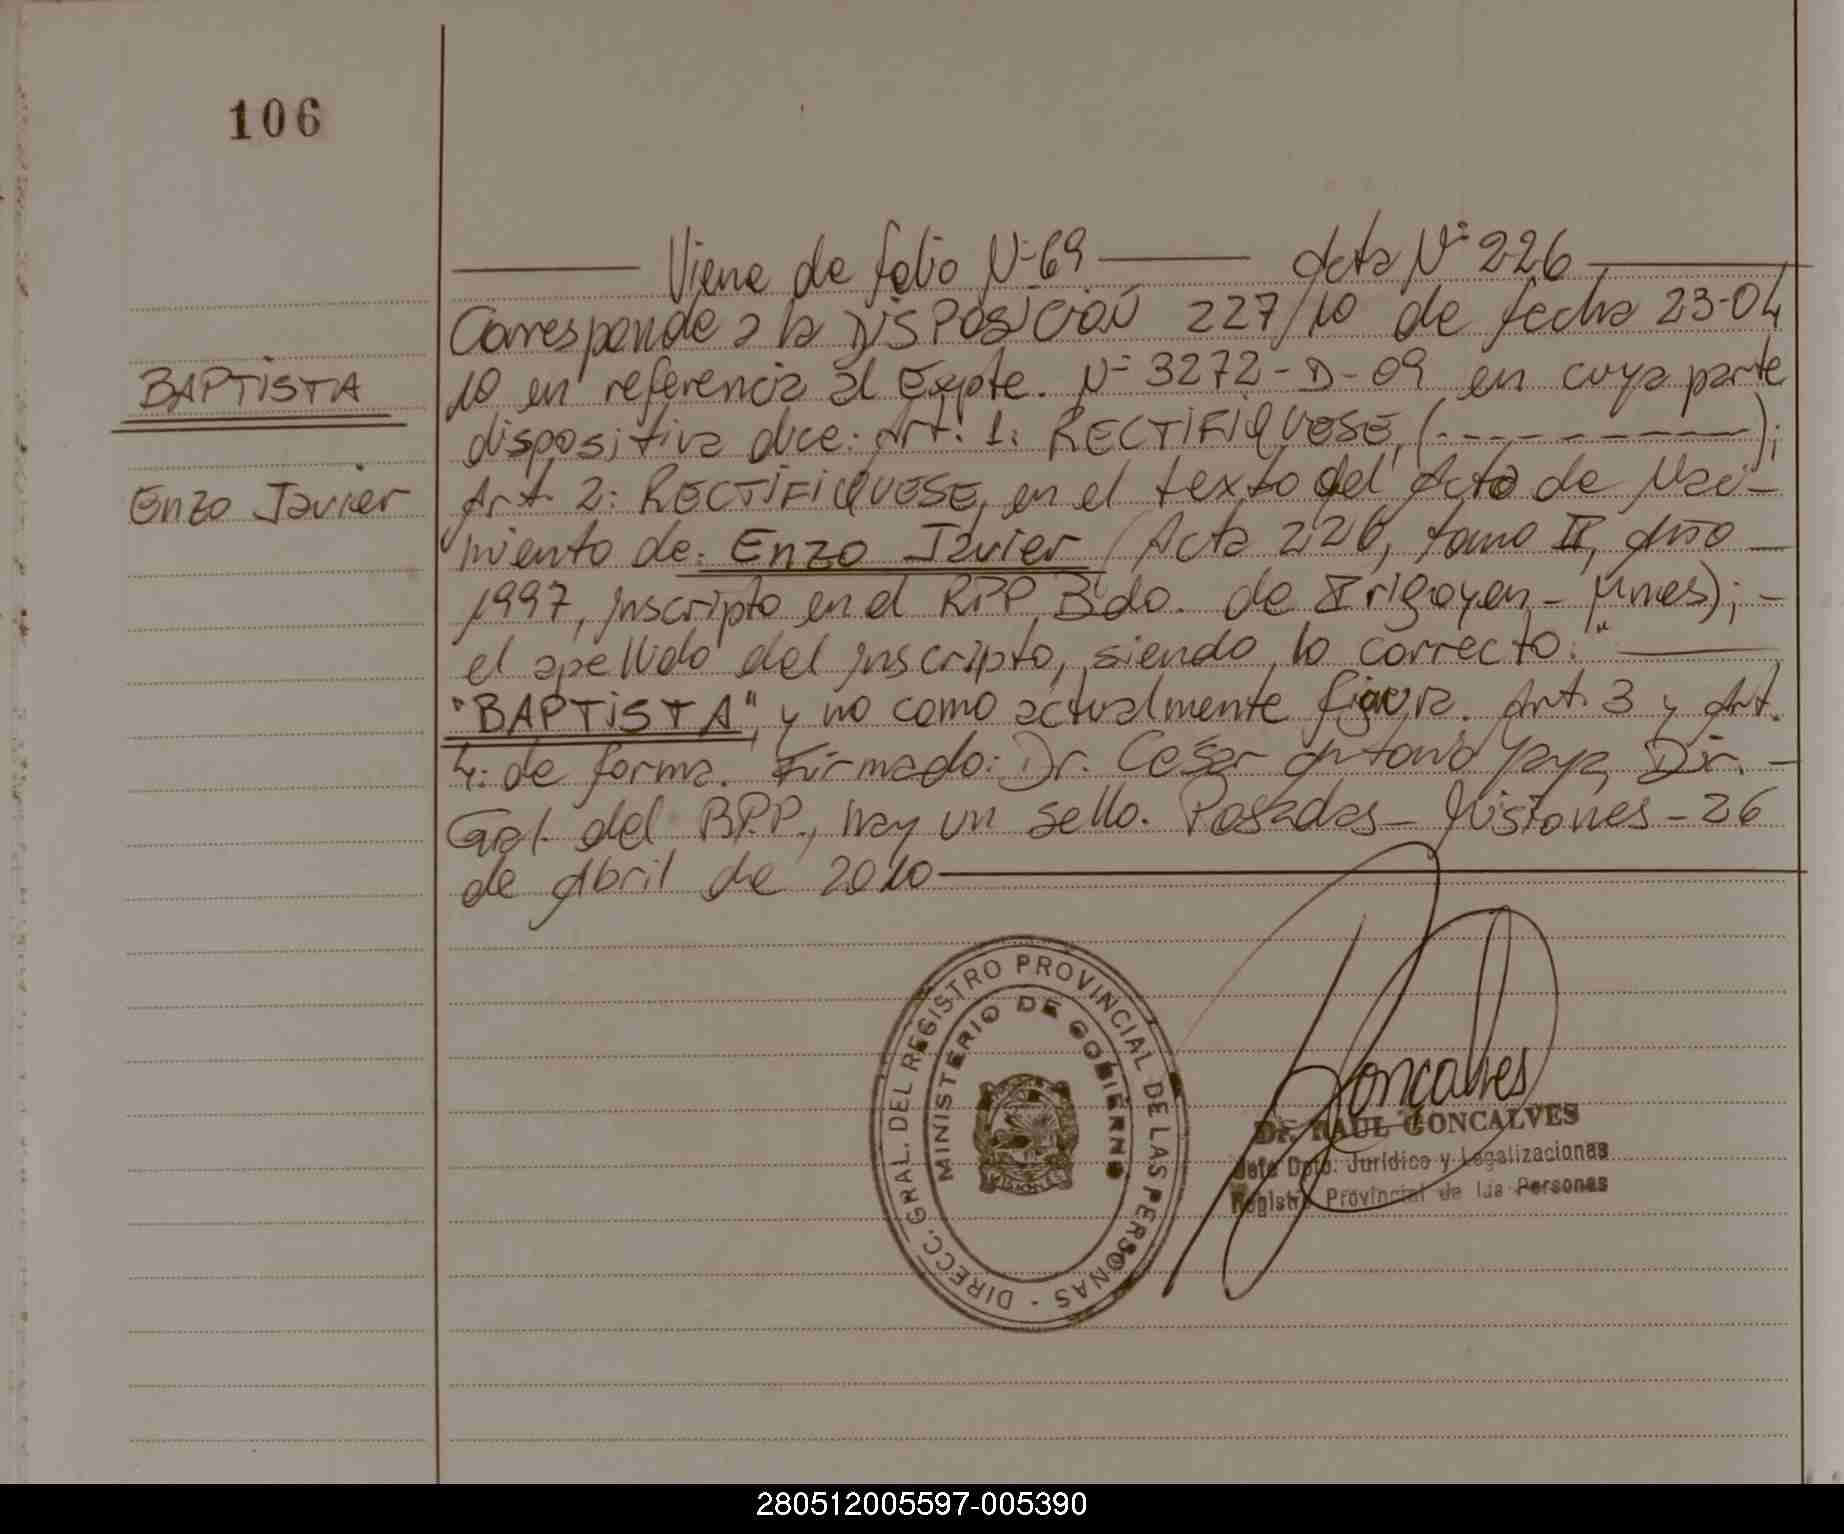 106
Viene de folio Nº 69 ——— Acta Nº 226
Corresponde a la DISPOSICIÓN 227/10 de fecha 23-04
BAPTISTA
10 en referencia al Expte. Nº 3272-D-09 en cuya parte
dispositiva dice: Art. 1: RECTIFIQUESE, (- - - - - - - - -);
Enzo Javier
Art. 2: RECTIFIQUESE, en el texto del Acta de Naci-
miento de: Enzo Javier (Acta 226, tomo II, año —
1997, inscripto en el RPP Bdo. de Irigoyen - Mnes); -
el apellido del inscripto, siendo lo correcto: " ———
"BAPTISTA", y no como actualmente figura. Art. 3 y Art.
4: de forma. Firmado: Dr. Cesar Antonio Yaya, Dir. -
Gral. del RPP., hay un sello. Posadas - Misiones - 26
de Abril de 2010 ———
DIRECC. GRAL. DEL REGISTRO PROVINCIAL DE LAS PERSONAS -
MINISTERIO DE GOBIERNO
MISIONES
Goncalves
Dr. RAUL GONCALVES
Jefe Dpto. Jurídico y Legalizaciones
Registro Provincial de las Personas
280512005597-005390